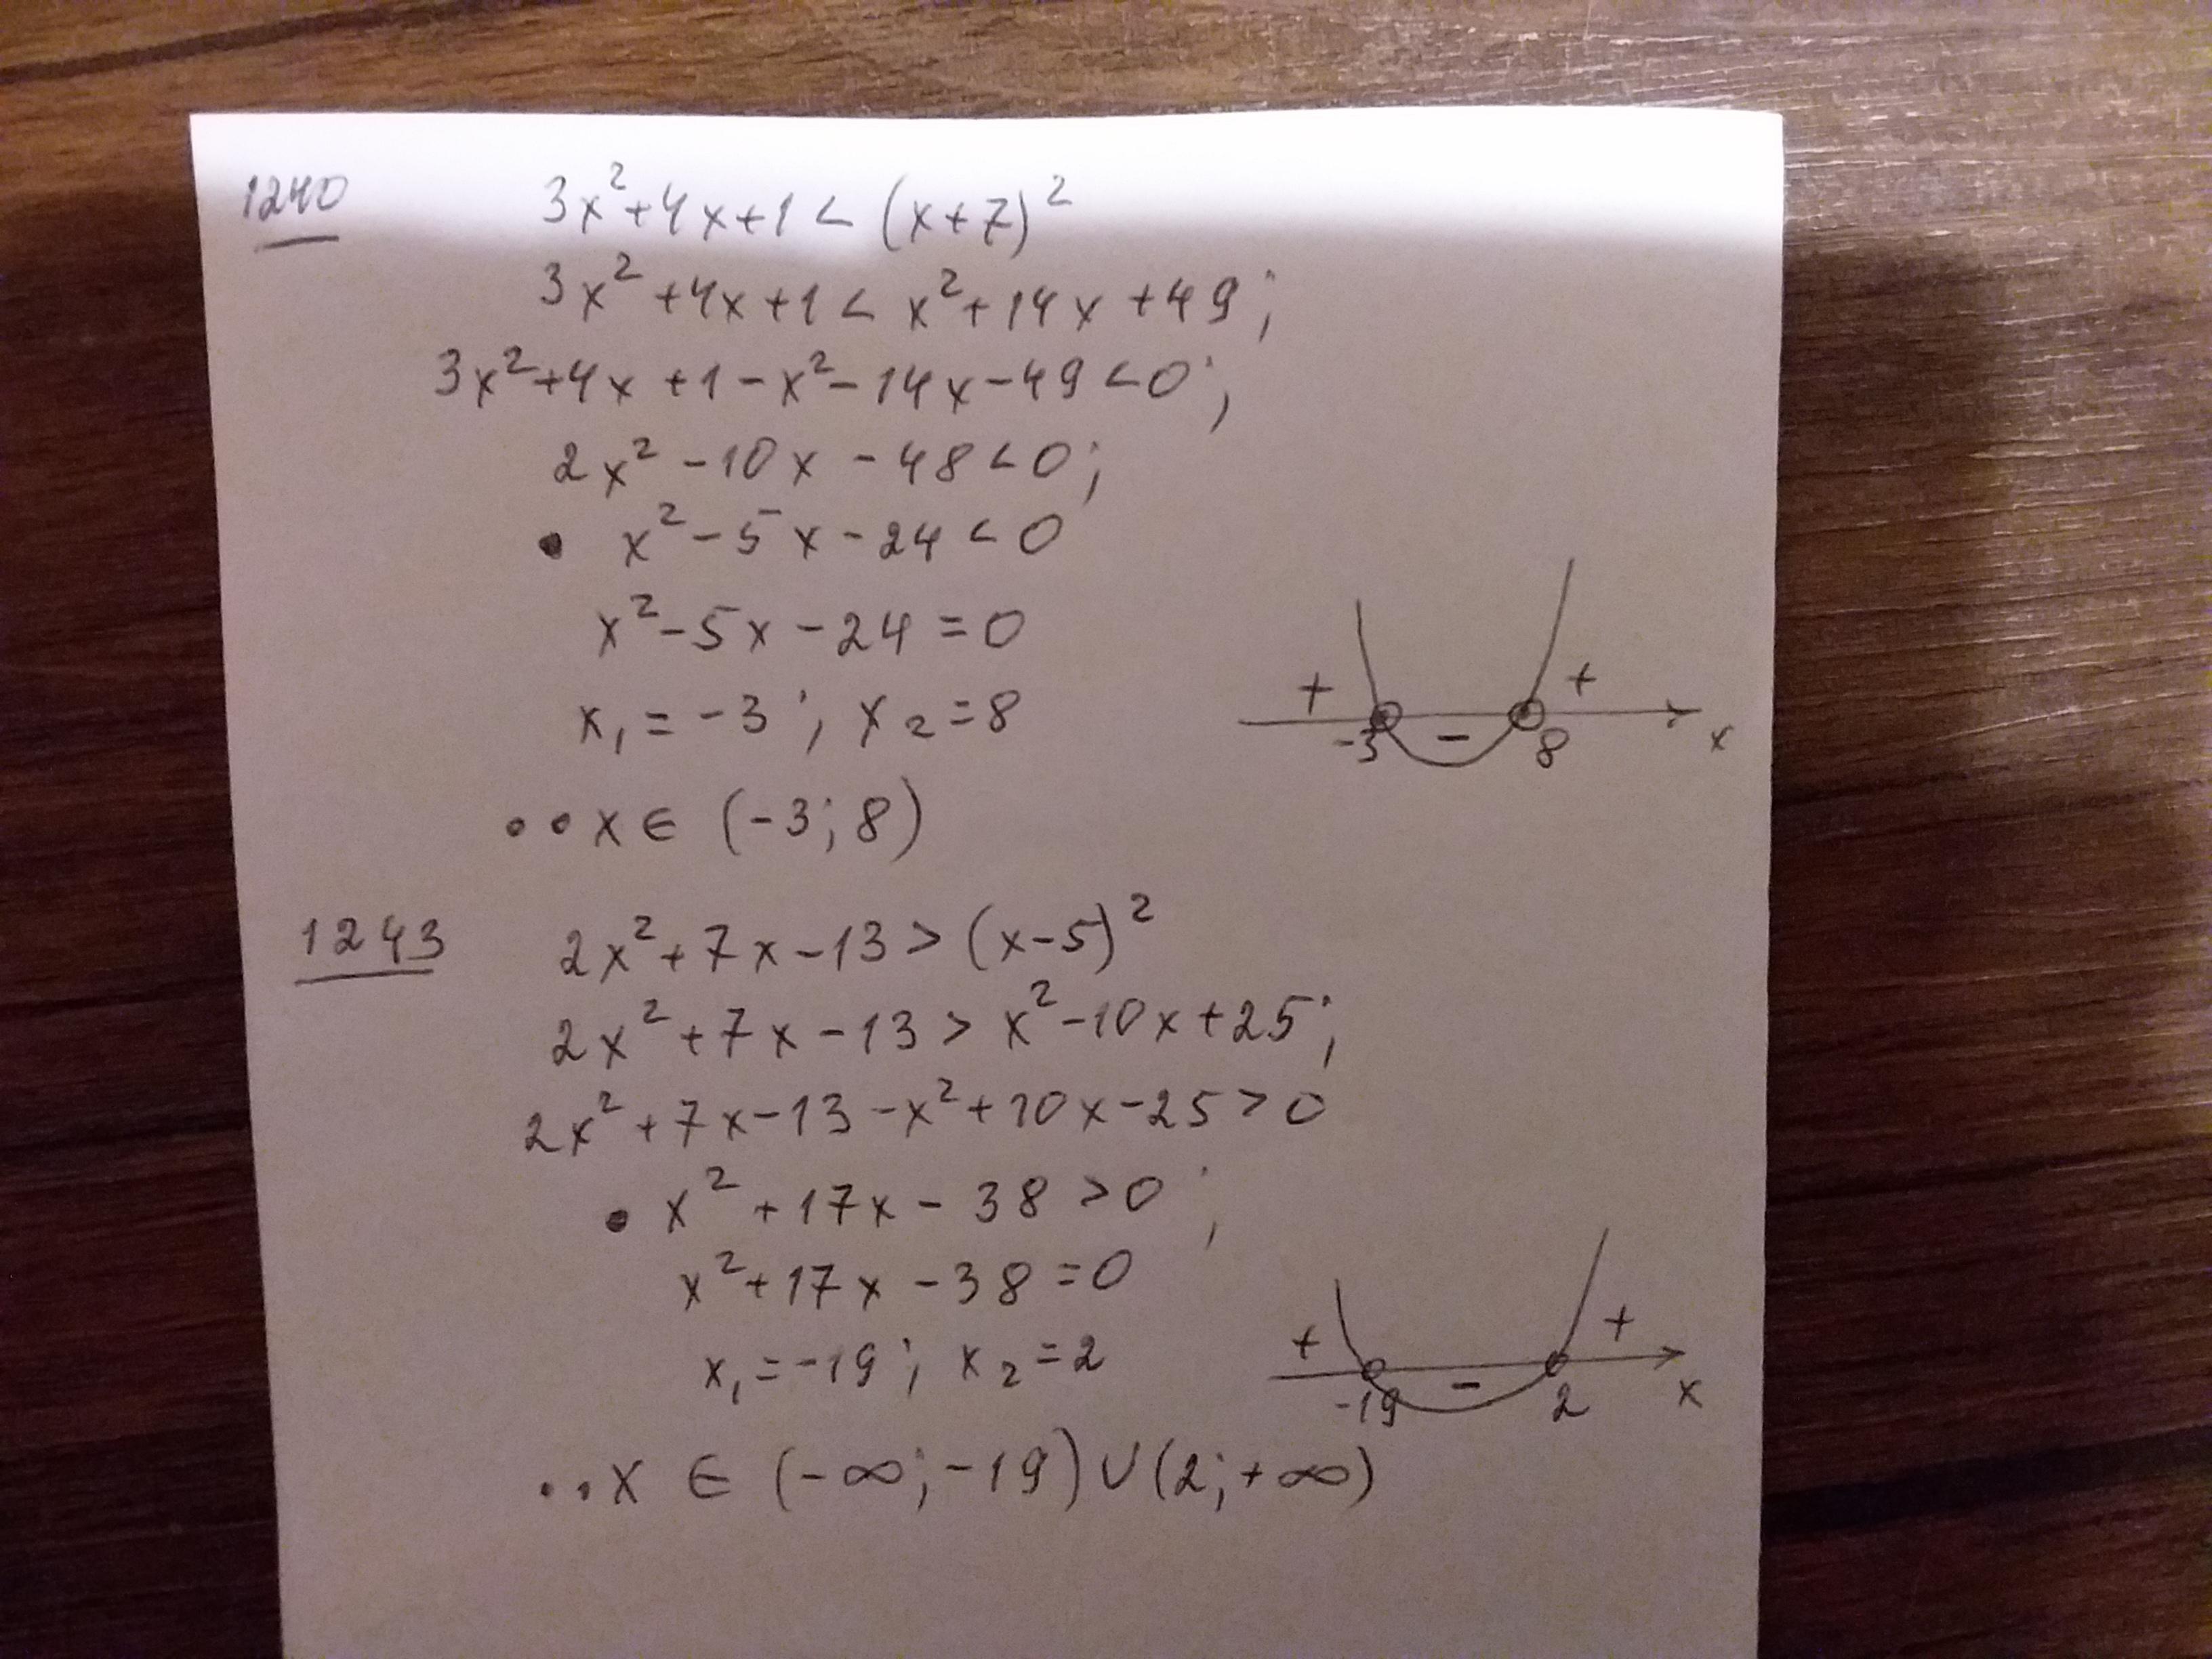 1240 3x²+4x+1 < (x+7)²
3x²+4x+1 < x²+14x+49;
3x²+4x+1-x²-14x-49<0;
2x²-10x-48<0;
• x²-5x-24<0
x²-5x-24=0
x₁=-3; x₂=8
+ + - -3 8 x
• • x ∈ (-3; 8)
1243 2x²+7x-13 > (x-5)²
2x²+7x-13 > x²-10x+25;
2x²+7x-13-x²+10x-25>0
• x²+17x-38>0;
x²+17x-38=0
x₁=-19; x₂=2
+ + - -19 2 x
• • x ∈ (-∞; -19) ∪ (2; +∞)